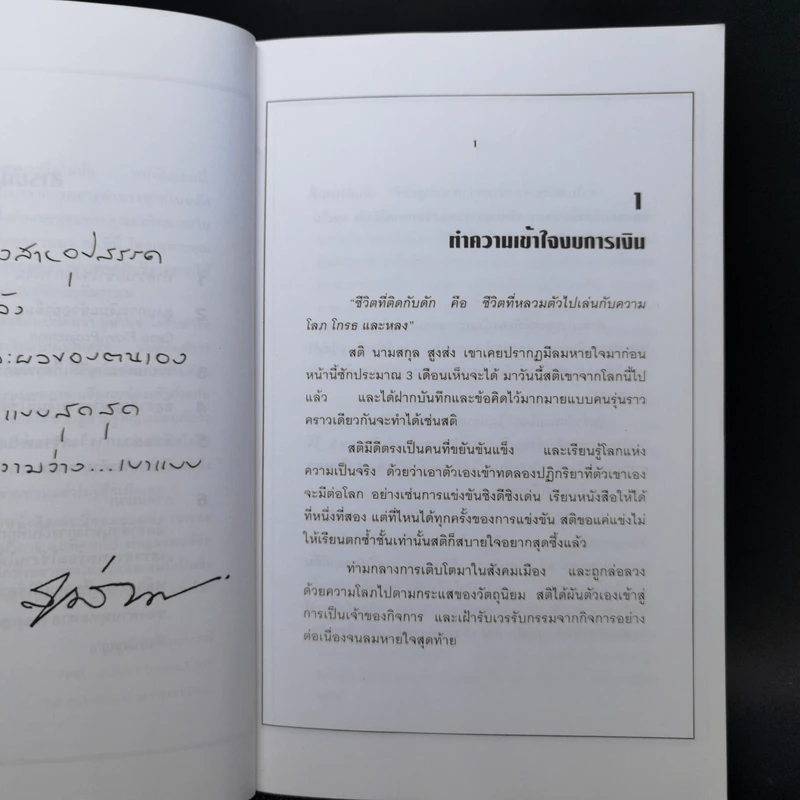 งสาะอุปสรรค
ลัง
ะผลของตนเอง
แบบสุดสุด
วามว่าง...เบาแบบ
1
1
ทำความเข้าใจงบการเงิน
"ชีวิตที่ติดกับดัก คือ ชีวิตที่หลวมตัวไปเล่นกับความ
โลภ โกรธ และหลง"
สติ นามสกุล สูงส่ง เขาเคยปรากฏมีลมหายใจมาก่อน
หน้านี้ซักประมาณ 3 เดือนเห็นจะได้ มาวันนี้สติเขาจากโลกนี้ไป
แล้ว และได้ฝากบันทึกและข้อคิดไว้มากมายแบบคนรุ่นราว
คราวเดียวกันจะทำได้เช่นสติ
สติมีดีตรงเป็นคนที่ขยันขันแข็ง และเรียนรู้โลกแห่ง
ความเป็นจริง ด้วยว่าเอาตัวเองเข้าทดลองปฏิกริยาที่ตัวเขาเอง
จะมีต่อโลก อย่างเช่นการแข่งขันชิงดีชิงเด่น เรียนหนังสือให้ได้
ที่หนึ่งที่สอง แต่ที่ไหนได้ทุกครั้งของการแข่งขัน สติขอแค่แข่งไม่
ให้เรียนตกซ้ำชั้นเท่านั้นสติก็สบายใจอยากสุดซึ้งแล้ว
ท่ามกลางการเติบโตมาในสังคมเมือง และถูกล่อลวง
ด้วยความโลภไปตามกระแสของวัตถุนิยม สติได้ผันตัวเองเข้าสู่
การเป็นเจ้าของกิจการ และเฝ้ารับเวรรับกรรมจากกิจการอย่าง
ต่อเนื่องจนลมหายใจสุดท้าย